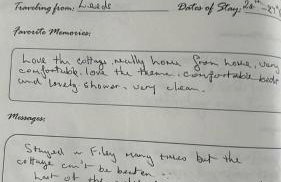 Traveling from: Leeds Dates of Stay: 20th
Favorite Memories:
Love the cottage, really home from home, very
comfortable, love the theme, comfortable beds
and lovely shower. very clean.
Messages:
Stayed in Filey many times but the
cottage can't be beaten
of the